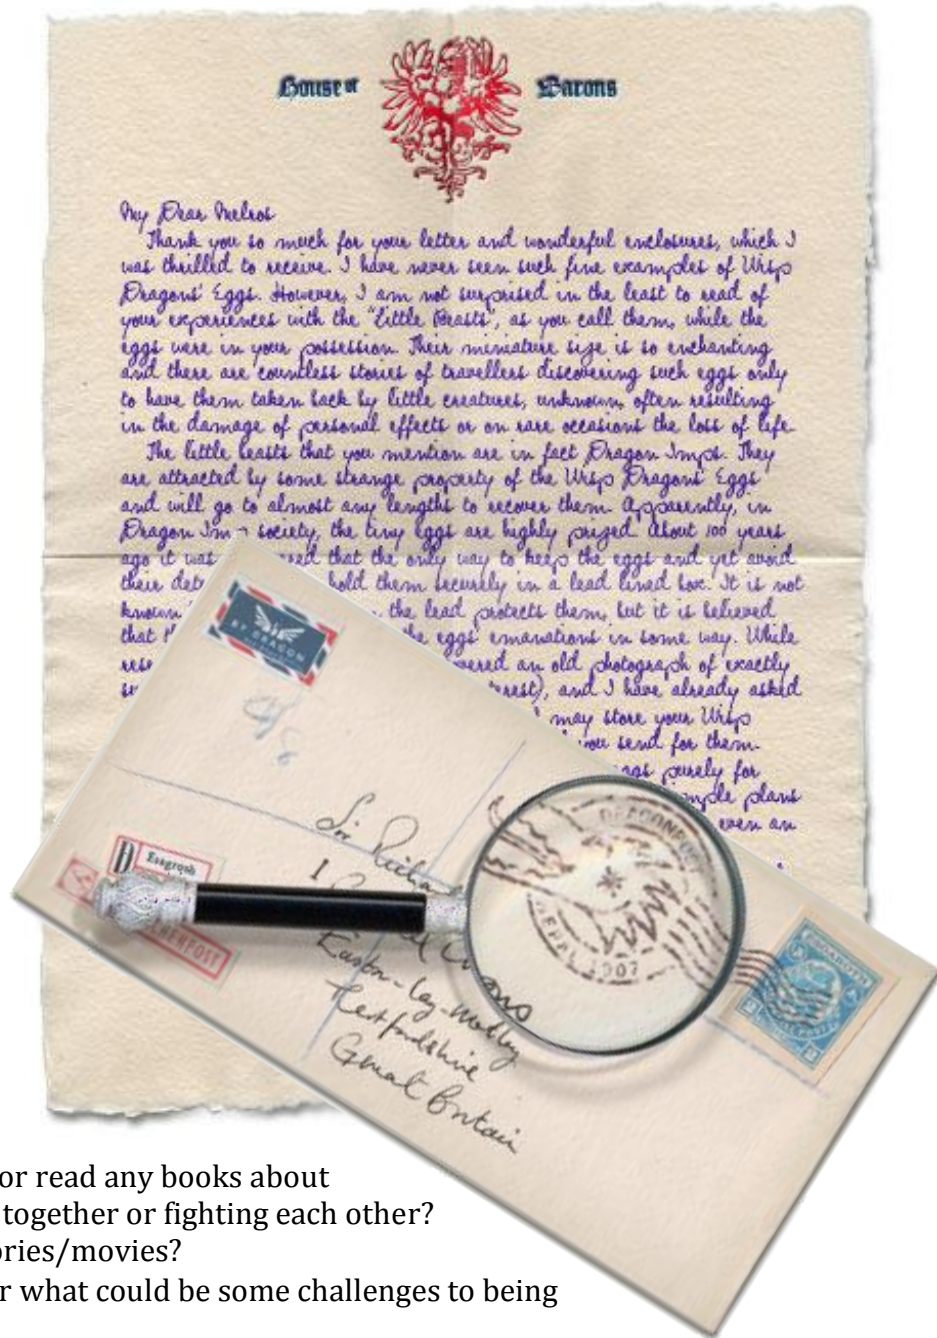 House of Barons
My Dear Melros
Thank you so much for your letter and wonderful enclosures, which I
was thrilled to receive. I have never seen such fine examples of Wisp
Dragons' Eggs. However, I am not surprised in the least to read of
your experiences with the "Little Beasts", as you call them, while the
eggs were in your possession. Their miniature size is so enchanting
and there are countless stories of travellers discovering such eggs only
to have them taken back by little creatures, unknown, often resulting
in the damage of personal effects or on rare occasions the loss of life.
The little beasts that you mention are in fact Dragon Imps. They
are attracted by some strange property of the Wisp Dragons' Eggs
and will go to almost any lengths to recover them. Apparently, in
Dragon Im society, the tiny eggs are highly prized. About 100 years
ago it was ed that the only way to keep the eggs and yet avoid
their det hold them securely in a lead lined box. It is not
known the lead protects them, but it is believed
that the eggs' emanations in some way. While
rese vered an old photograph of exactly
terest), and I have already asked
I may store your Wisp
you send for them.
ggs purely for
mple plans
even an
BY DRAGON
Sir Richa
1
Easton-Ley-Motley
Hertfordshire
Great Britain
DRAGONPOST
1907
HERPOST
or read any books about
together or fighting each other?
ories/movies?
r what could be some challenges to being